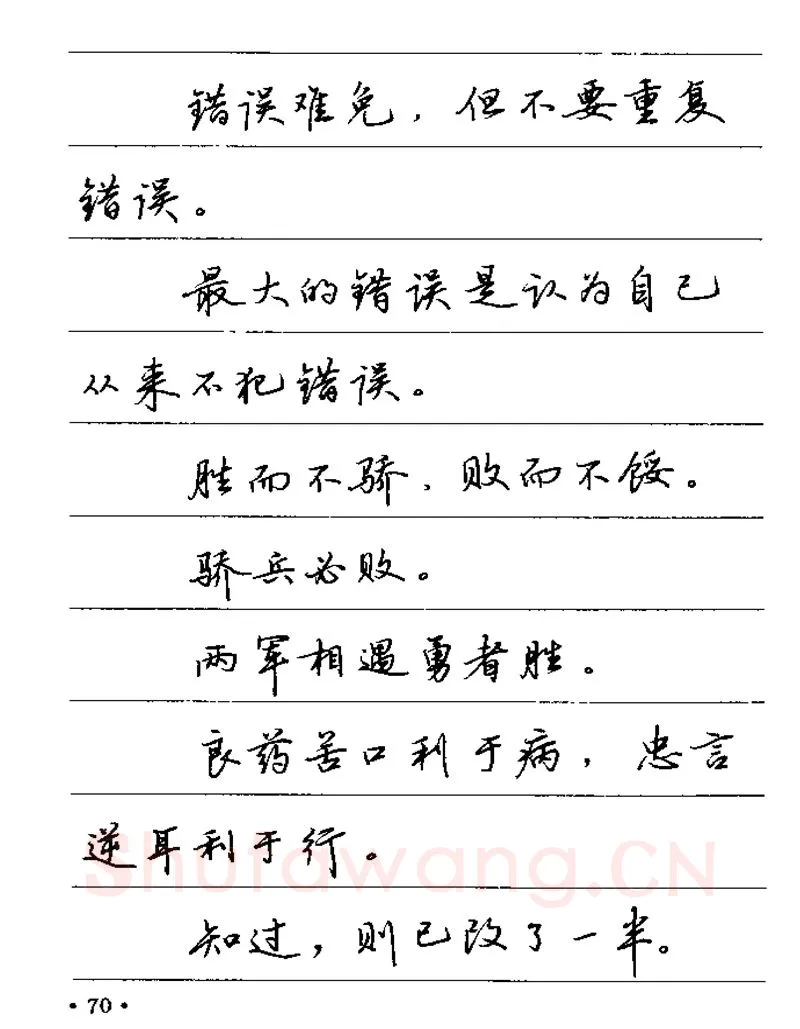 错误难免，但不要重复
错误。
最大的错误是认为自己
从来不犯错误。
胜而不骄，败而不馁。
骄兵必败。
两军相遇勇者胜。
良药苦口利于病，忠言
逆耳利于行。
Shufawang.CN
知过，则已改了一半。
·70·